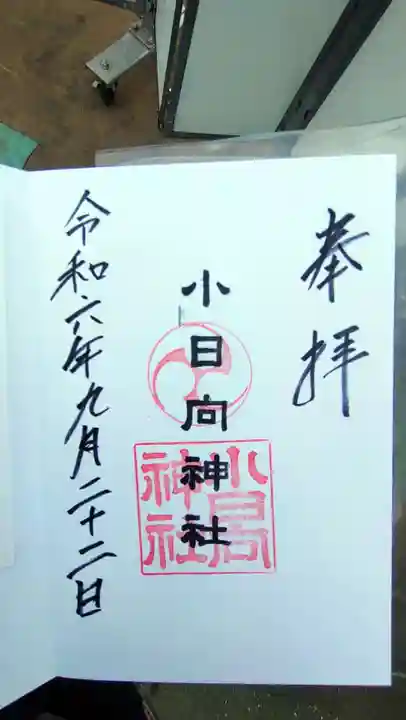 奉拝
小日向神社
小日向
神社
令和六年九月二十二日